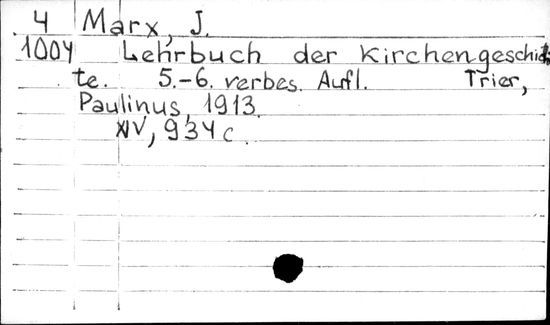 4 Marx, J.
1004 Lehrbuch der Kirchengeschich
te. 5.-6. verbes. Aufl. Trier,
Paulinus, 1913.
XIV, 934 c.